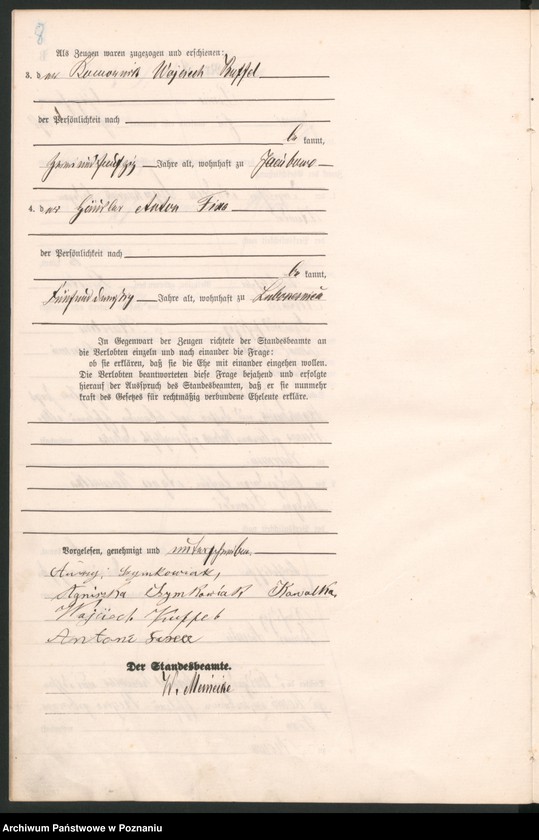 8
Als Zeugen waren zugezogen und erschienen:
3. der Wojciech Kuffel
der Persönlichkeit nach
be kannt,
zweiundfünfzig Jahre alt, wohnhaft zu
4. der Häusler Anton
der Persönlichkeit nach
be kannt,
Fünfund Jahre alt, wohnhaft zu
In Gegenwart der Zeugen richtete der Standesbeamte an
die Verlobten einzeln und nach einander die Frage:
ob sie erklären, daß sie die Ehe mit einander eingehen wollen.
Die Verlobten beantworteten diese Frage bejahend und erfolgte
hierauf der Ausspruch des Standesbeamten, daß er sie nunmehr
kraft des Gesetzes für rechtmäßig verbundene Eheleute erkläre.
Vorgelesen, genehmigt und unterschrieben.
Szymkowiak,
Agniszka Szymkowiak Kowalka.
Wojciech Kuffel
Antoni
Der Standesbeamte.
W. Meinicke
Archiwum Państwowe w Poznaniu